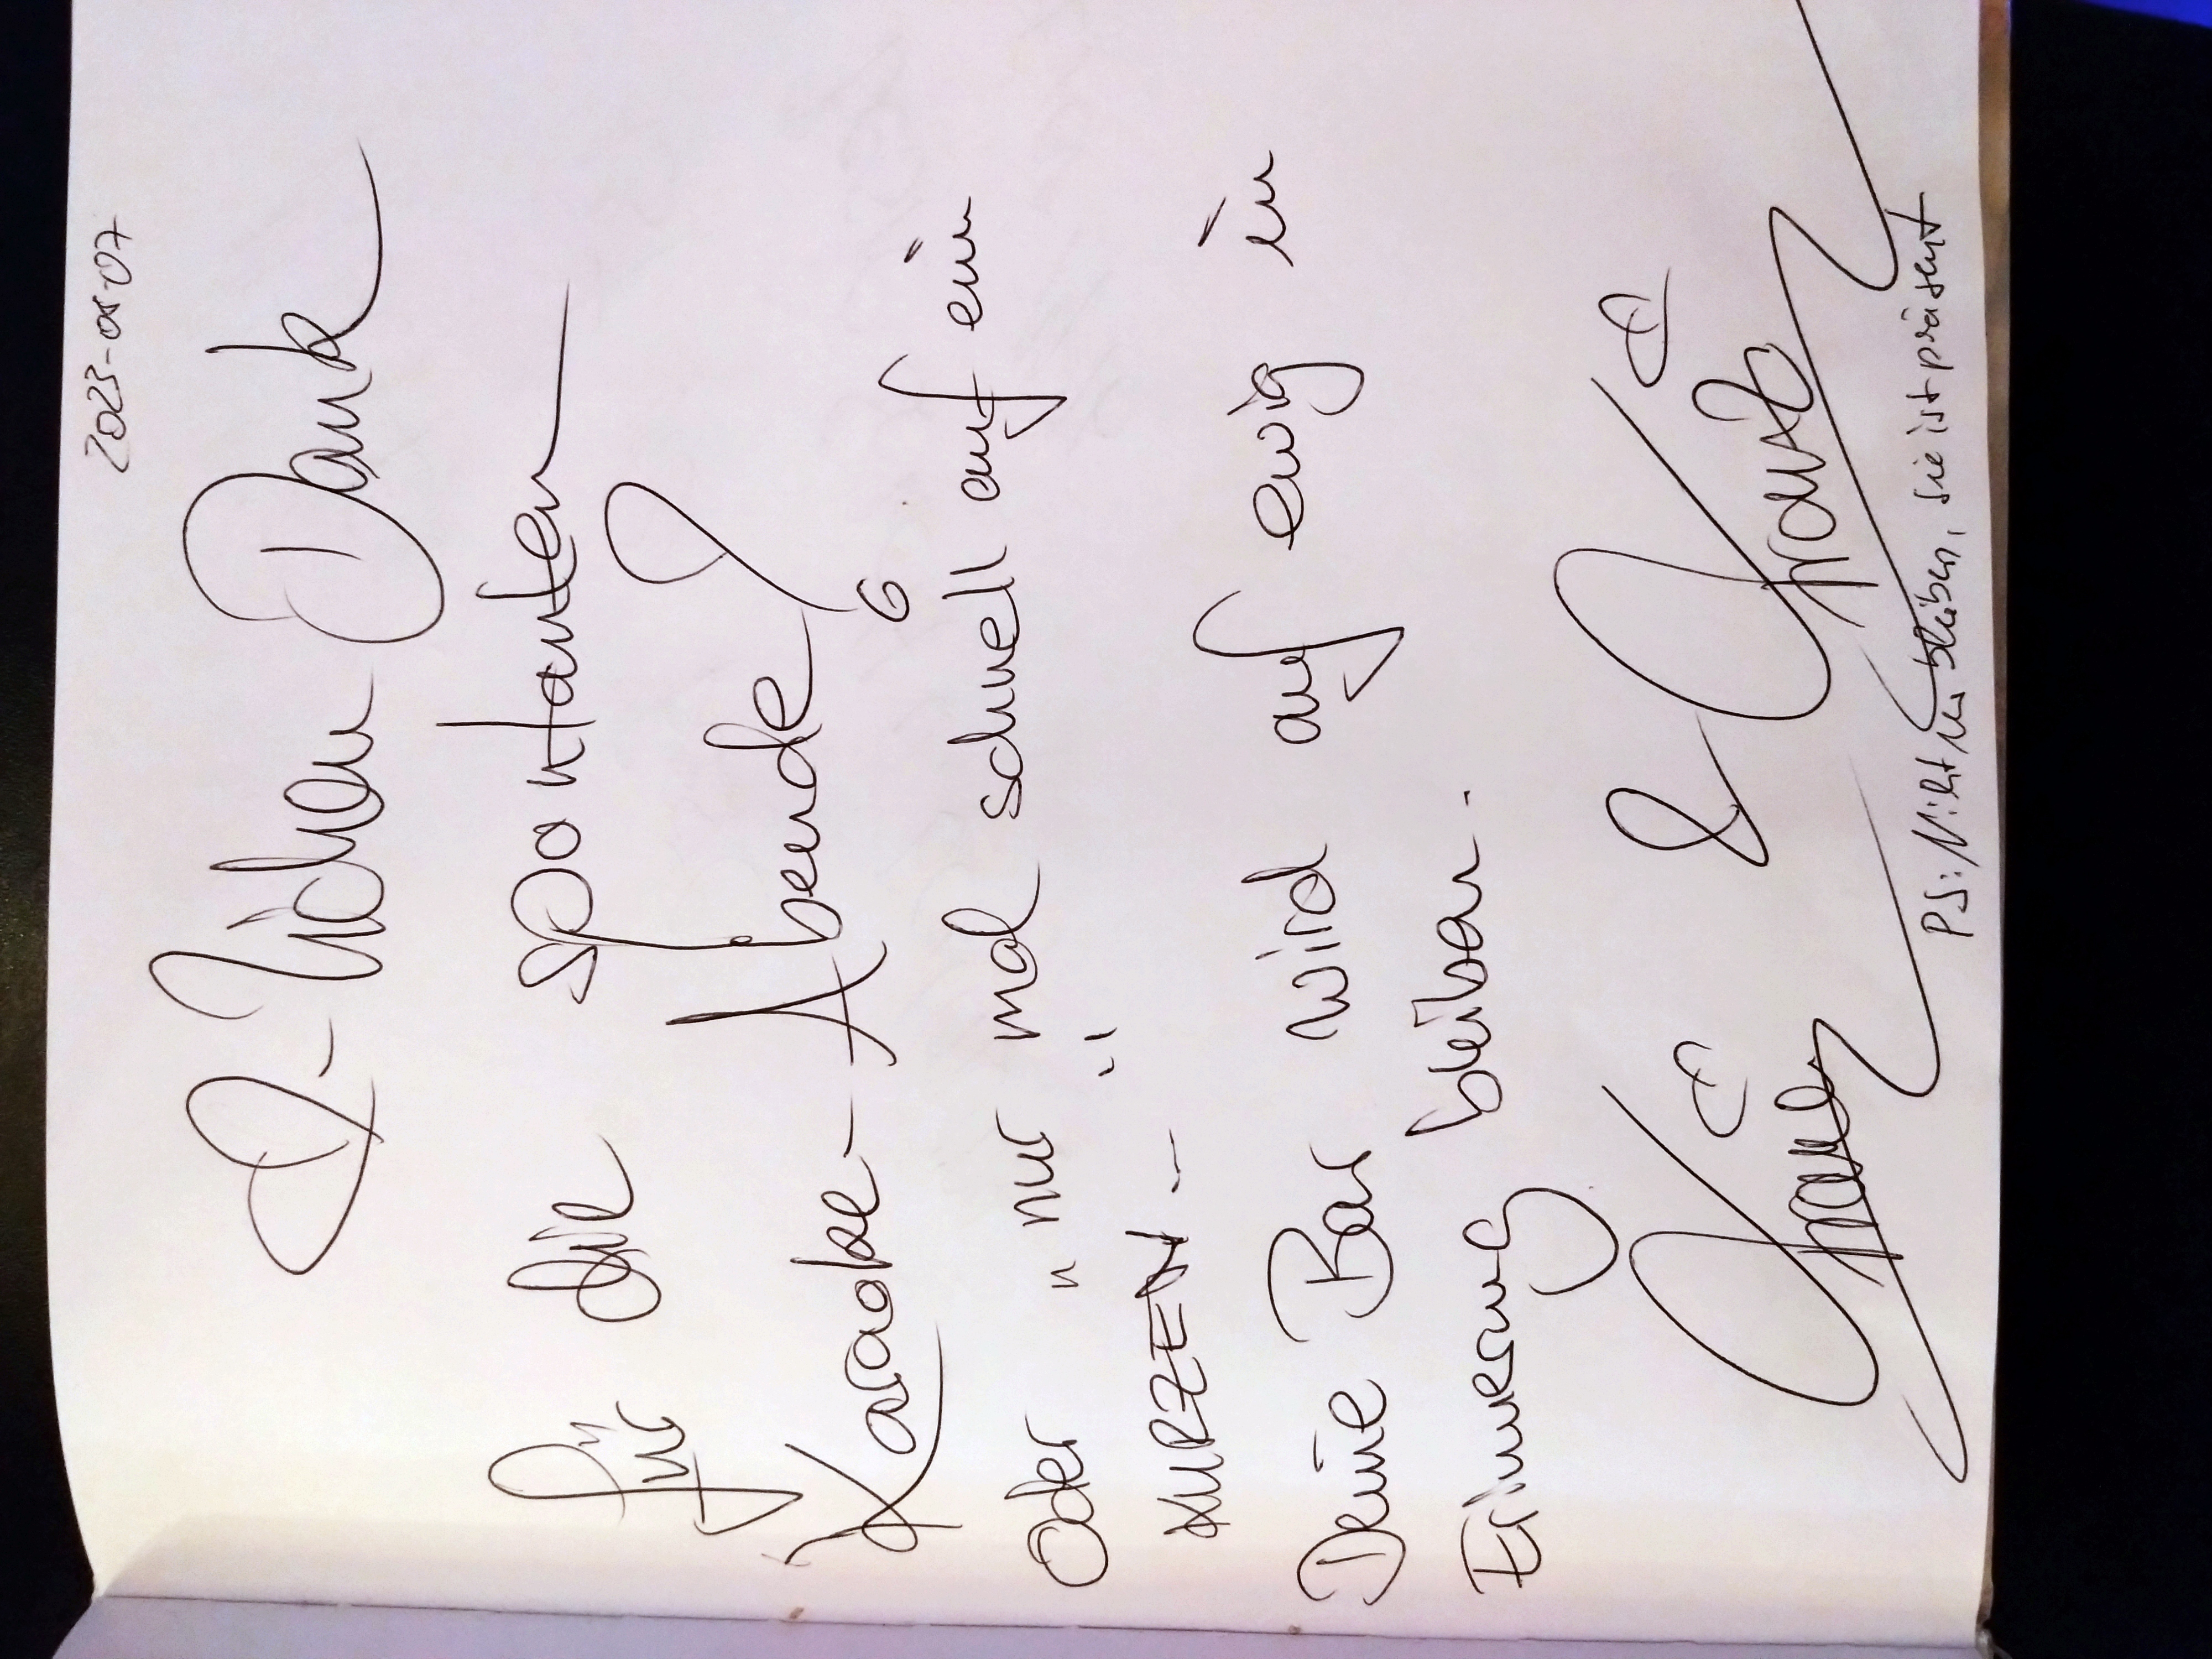 2023-08-07
♡-lichen Dank
für die spontanen
Karaoke-Abende
Oder "nur" mal schnell auf ein
KURZEN --
Deine Bar wird auf ewig in
Erinnerung bleiben.
&
P.S.: sie ist präsent